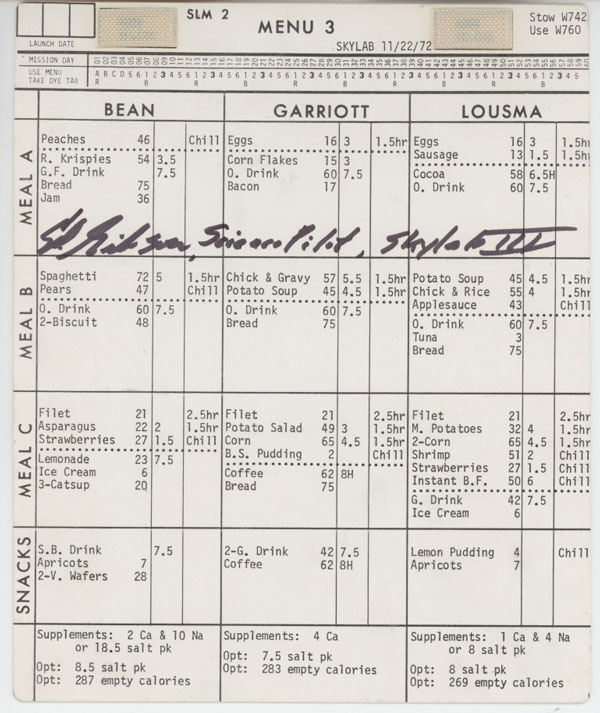 SLM 2
MENU 3
SKYLAB 11/22/72
Stow W742
Use W760
LAUNCH DATE
MISSION DAY
USE MENU A B C D 5 6 1 2 3 4 5 6 1 2 3 4 5 6 1 2 3 4 5 6 1 2 3 4 5 6 1 2 3 4 5 6 1 2 3 4 5 6 1 2 3 4 5 6 1 2 3 4 5 6 1 2 3 4 5
TAKE DYE TAB R B R B R B R B R B
BEAN GARRIOTT LOUSMA
MEAL A
Peaches 46 Chill
R. Krispies 54 3.5
G.F. Drink 7.5
Bread 75
Jam 36
Eggs 16 3 1.5hr
Corn Flakes 15 3
O. Drink 60 7.5
Bacon 17
Eggs 16 3 1.5h
Sausage 13 1.5 1.5h
Cocoa 58 6.5H
O. Drink 60 7.5
Science Pilot, Skylab III
MEAL B
Spaghetti 72 5 1.5hr
Pears 47 Chill
O. Drink 60 7.5
2-Biscuit 48
Chick & Gravy 57 5.5 1.5hr
Potato Soup 45 4.5 1.5hr
O. Drink 60 7.5
Bread 75
Potato Soup 45 4.5 1.5hr
Chick & Rice 55 4 1.5hr
Applesauce 43 Chill
O. Drink 60 7.5
Tuna 3
Bread 75
MEAL C
Filet 21 2.5hr
Asparagus 22 2 1.5hr
Strawberries 27 1.5 Chill
Lemonade 23 7.5
Ice Cream 6
3-Catsup 20
Filet 21 2.5hr
Potato Salad 49 3 1.5hr
Corn 65 4.5 1.5hr
B.S. Pudding 2 Chill
Coffee 62 8H
Bread 75
Filet 21 2.5hr
M. Potatoes 32 4 1.5hr
2-Corn 65 4.5 1.5hr
Shrimp 51 2 Chill
Strawberries 27 1.5 Chill
Instant B.F. 50 6 Chill
G. Drink 42 7.5
Ice Cream 6
SNACKS
S.B. Drink 7.5
Apricots 7
2-V. Wafers 28
2-G. Drink 42 7.5
Coffee 62 8H
Lemon Pudding 4 Chill
Apricots 7
Supplements: 2 Ca & 10 Na
or 18.5 salt pk
Opt: 8.5 salt pk
Opt: 287 empty calories
Supplements: 4 Ca
Opt: 7.5 salt pk
Opt: 283 empty calories
Supplements: 1 Ca & 4 Na
or 8 salt pk
Opt: 8 salt pk
Opt: 269 empty calories